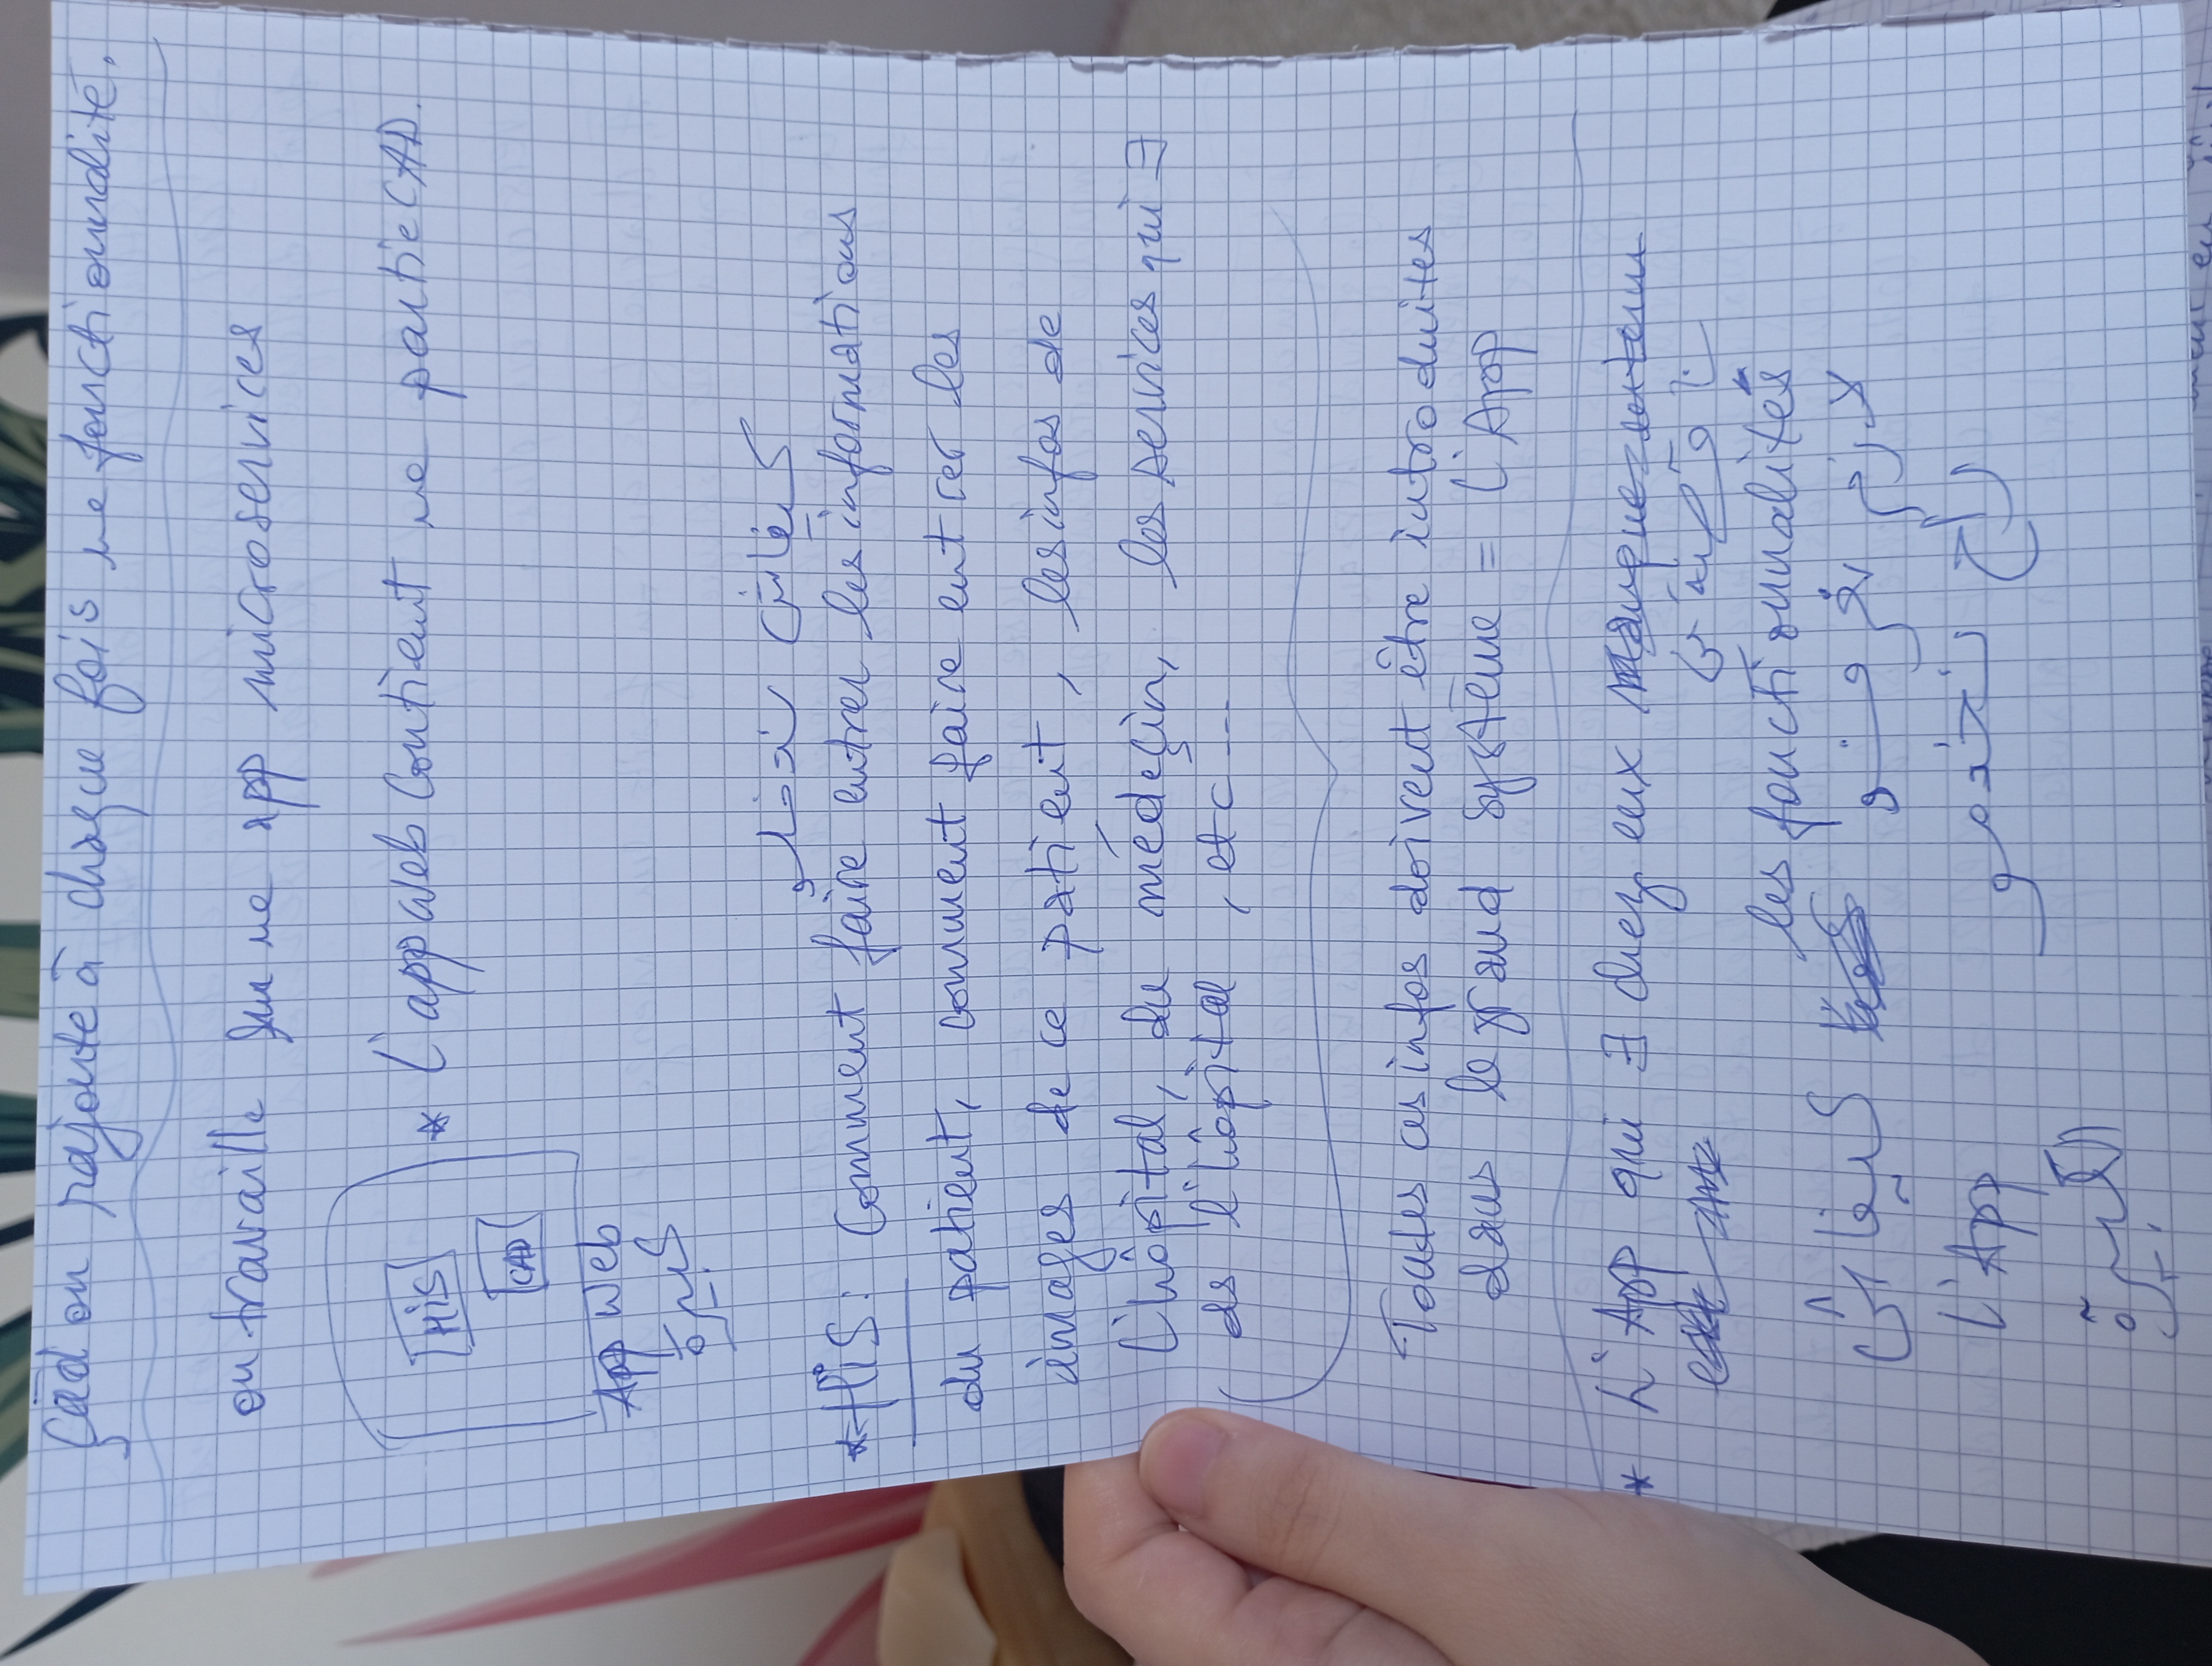 çàd on rajoute à chaque fois une fonctionnalité.
on travaille sur une app microservices
HiS
CAD
App Web
كبيرة
* L'app web contient une partie CAD.
كيفاش ندخلو
* HiS: Comment faire entrer les informations
du patient, comment faire entrer les
images de ce patient, les infos de
L'hôpital, du médeçin, les services qui ∃
ds l'hôpital, etc...
Toutes ces infos doivent être introduites
dans le grand système = L'App
* L'App qui ∃ chez eux
ناقصة في
les fonctionnalités
لازم نعرفو كيفاش
راح نخدمو L'App
الكبيرة